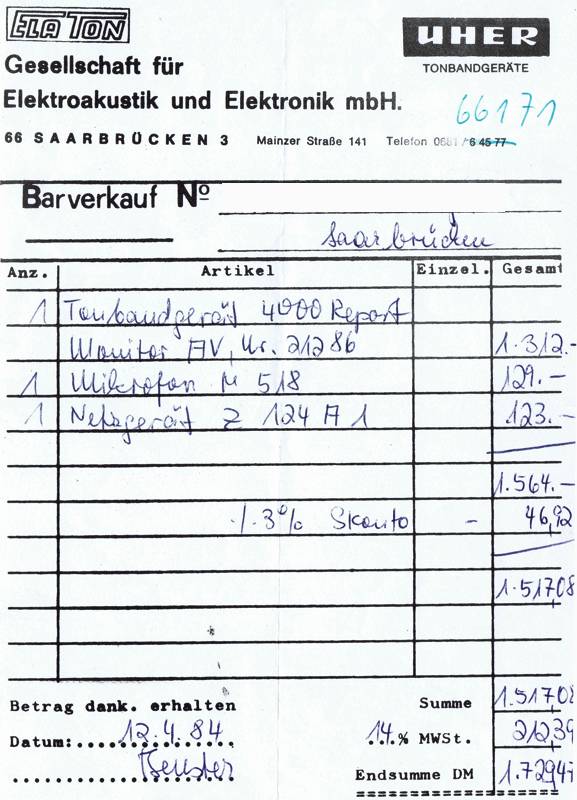 ELA TON
UHER
Gesellschaft für
TONBANDGERÄTE
Elektroakustik und Elektronik mbH.
66171
66 SAARBRÜCKEN 3 Mainzer Straße 141 Telefon 0681 / 6 45 77
Barverkauf Nº
Saarbrücken
Anz. Artikel Einzel. Gesamt
1 Tonbandgerät 4000 Report
Monitor AV, Nr. 21286 1.312.-
1 Mikrofon M 518 129.-
1 Netzgerät Z 124 A 1 123.-
1.564.-
·/. 3% Skonto - 46,92
1.517,08
Betrag dank. erhalten Summe 1.517,08
Datum: 12.4.84 14.% MWSt. 212,39
Endsumme DM 1.729,47